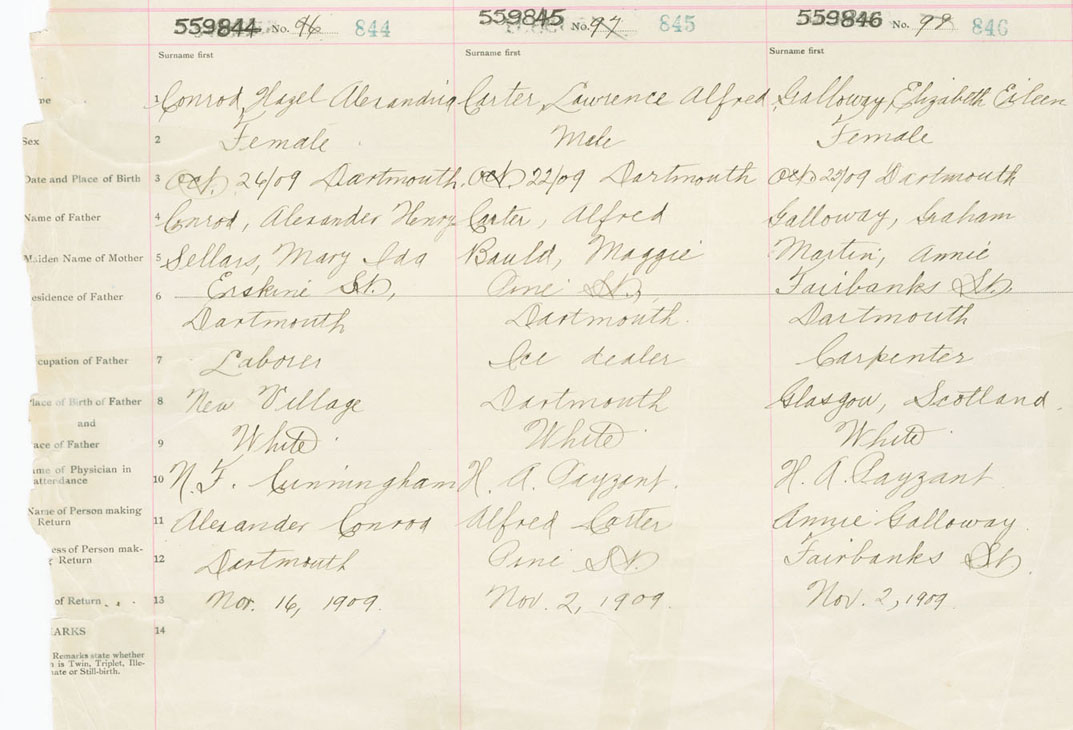 559844 No. 96 844 559845 No. 97 845 559846 No. 98 846
Surname first Surname first Surname first
me 1 Conrod, Hazel Alexandria Carter, Lawrence Alfred Galloway, Elizabeth Eileen
Sex 2 Female Male Female
Date and Place of Birth 3 Oct. 26/09 Dartmouth. Oct. 22/09 Dartmouth Oct. /09 Dartmouth
Name of Father 4 Conrod, Alexander Henry Carter, Alfred Galloway, Graham
Maiden Name of Mother 5 Sellars, Mary Ida Bauld, Maggie Martin, Annie
esidence of Father 6 Erskine St., Pine St., Fairbanks St.
Dartmouth Dartmouth. Dartmouth
cupation of Father 7 Laborer Ice dealer Carpenter
Place of Birth of Father 8 New Village Dartmouth Glasgow, Scotland.
and
ace of Father 9 White White White
ame of Physician in attendance 10 N. F. Cunningham H. A. Payzant. H. A. Payzant
Name of Person making Return 11 Alexander Conrod Alfred Carter Annie Galloway.
ess of Person mak- Return 12 Dartmouth Pine St. Fairbanks St.
of Return 13 Nov. 16, 1909. Nov. 2, 1909. Nov. 2, 1909.
ARKS 14
Remarks state whether
is Twin, Triplet, Ille-
ate or Still-birth.